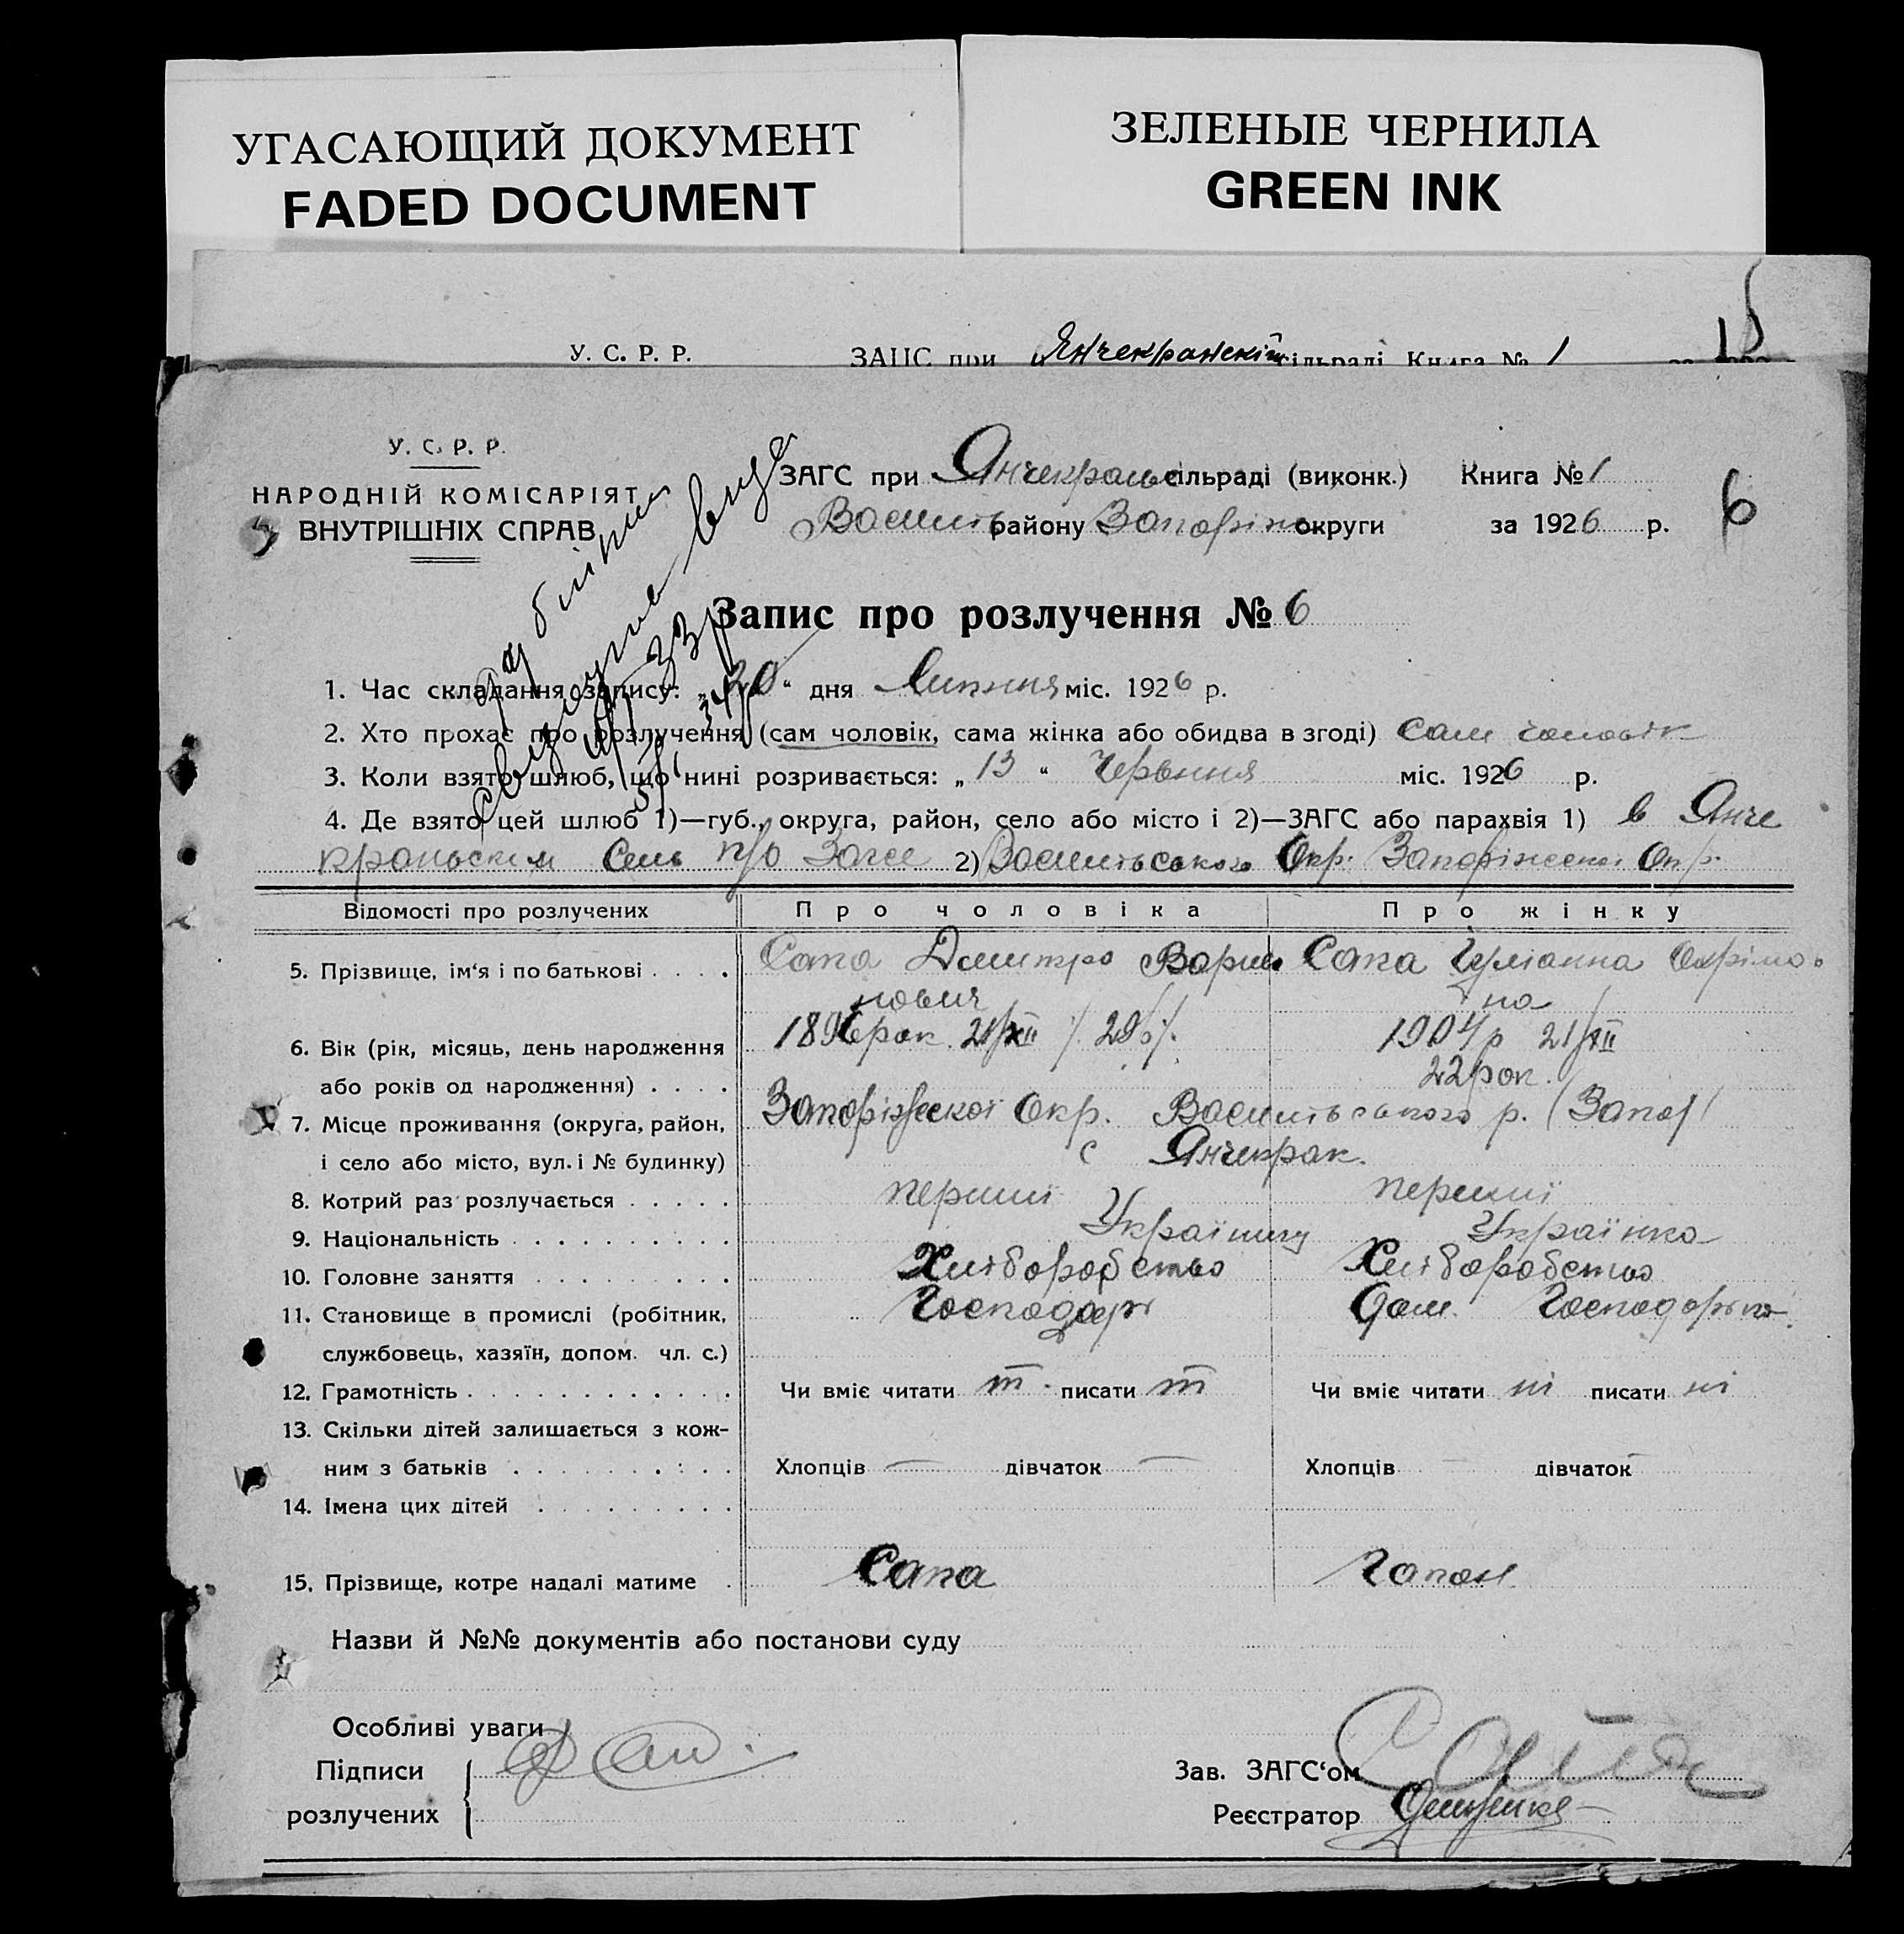 УГАСАЮЩИЙ ДОКУМЕНТ
FADED DOCUMENT
ЗЕЛЕНЫЕ ЧЕРНИЛА
GREEN INK
У. С. Р. Р. ЗАГС при Янчекракскій сільраді Книга № 1
У. С. Р. Р.
НАРОДНІЙ КОМІСАРІЯТ
ВНУТРІШНІХ СПРАВ
ЗАГС при Янчекраньс сільраді (виконк.) Книга № 1
Василь району Запоріж округи за 1926 р.
6
Запис про розлучення № 6
1. Час складання запису: „20“ дня Липня міс. 1926 р.
2. Хто прохає про розлучення (сам чоловік, сама жінка або обидва в згоді) сам чоловік
3. Коли взято шлюб, що нині розривається: „13“ Червня міс. 1926 р.
4. Де взято цей шлюб 1)—губ., округа, район, село або місто і 2)—ЗАГС або парахвія 1) в Янче
кракським Сель Загсе 2) Васильського Окр. Запоріжської Окр.
Відомості про розлучених Про чоловіка Про жінку
5. Прізвище, ім‘я і по батькові Сапа Дмитро Сапа Ульянна Охрімов
нович на
6. Вік (рік, місяць, день народження 1896 рок 21/XII 29 1904 р 21/XII
або років од народження) 22 рок.
7. Місце проживання (округа, район, Запоріжської Окр. Васильського р. (Запор)
і село або місто, вул. і № будинку) с Янчекрак.
8. Котрий раз розлучається перший перший
9. Національність Українец Українка
10. Головне заняття Хліборобство Хліборобство
11. Становище в промислі (робітник, Господарь Дом. Господарька
службовець, хазяїн, допом. чл. с.)
12. Грамотність Чи вміє читати т писати т Чи вміє читати ні писати ні
13. Скільки дітей залишається з кож-
ним з батьків Хлопців — дівчаток — Хлопців дівчаток
14. Імена цих дітей
15. Прізвище, котре надалі матиме Сапа Гапон
Назви й №№ документів або постанови суду
Особливі уваги
Підписи
розлучених
Зав. ЗАГС‘ом
Реєстратор